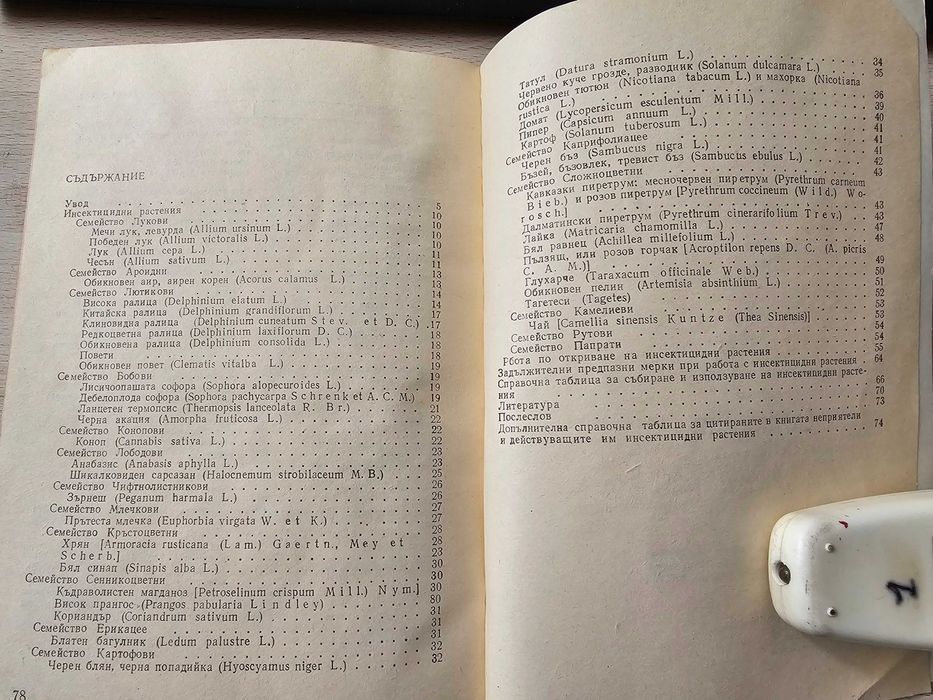 СЪДЪРЖАНИЕ
Увод . . . . . 5
Инсектицидни растения . . . . . 10
Семейство Лукови . . . . . 10
Мечи лук, левурда (Allium ursinum L.) . . . . . 10
Победен лук (Allium victoralis L.) . . . . . 10
Лук (Allium cepa L.) . . . . . 11
Чесън (Allium sativum L.) . . . . . 11
Семейство Ароидни . . . . . 13
Обикновен аир, аирен корен (Acorus calamus L.) . . . . . 13
Семейство Лютикови . . . . . 14
Висока ралица (Delphinium elatum L.) . . . . . 14
Китайска ралица (Delphinium grandiflorum L.) . . . . . 17
Клиновидна ралица (Delphinium cuneatum Stev. et D. C.) . 17
Редкоцветна ралица (Delphinium laxiflorum D. C.) . . . . . 18
Обикновена ралица (Delphinium consolida L.) . . . . . 18
Повети . . . . . 18
Обикновен повет (Clematis vitalba L.) . . . . . 18
Семейство Бобови . . . . . 19
Лисичоопашата софора (Sophora alopecuroides L.) . . . . . 19
Дебелоплода софора (Sophora pachycarpa Schrenk et A. C. M.) 19
Ланцетен термопсис (Thermopsis lanceolata R. Br.) . . . . . 21
Черна акация (Amorpha fruticosa L.) . . . . . 22
Семейство Конопови . . . . . 22
Коноп (Cannabis sativa L.) . . . . . 22
Семейство Лободови . . . . . 23
Анабазис (Anabasis aphylla L.) . . . . . 23
Шикалковиден сарсазан (Halocnemum strobilaceum M. B.) . . . 25
Семейство Чифтнолистникови . . . . . 26
Зърнеш (Peganum harmala L.) . . . . . 26
Семейство Млечкови . . . . . 27
Прътеста млечка (Euphorbia virgata W. et K.) . . . . . 27
Семейство Кръстоцветни . . . . . 28
Хрян [Armoracia rusticana (Lam.) Gaertn., Mey et . 28
Scherb.] . . . . . 23
Бял синап (Sinapis alba L.) . . . . . 30
Семейство Сенникоцветни . . . . . 30
Къдраволистен магданоз [Petroselinum crispum Mill.) Nym.] 30
Висок прангос (Prangos pabularia Lindley) . . . . . 80
Кориандър (Coriandrum sativum L.) . . . . . 31
Семейство Ерикацее . . . . . 31
Блатен багулник (Ledum palustre L.) . . . . . 32
Семейство Картофови . . . . . 32
Черен блян, черна попадийка (Hyoscyamus niger L.) . . . . . 32
78
Татул (Datura stramonium L.) . . . . . 34
Червено куче грозде, разводник (Solanum dulcamara L.) . . . 35
Обикновен тютюн (Nicotiana tabacum L.) и махорка (Nicotiana
rustica L.) . . . . . 36
Домат (Lycopersicum esculentum Mill.) . . . . . 39
Пипер (Capsicum annuum L.) . . . . . 40
Картоф (Solanum tuberosum L.) . . . . . 41
Семейство Каприфолиацее . . . . . 41
Черен бъз (Sambucus nigra L.) . . . . . 41
Бъзей, бъзовлек, тревист бъз (Sambucus ebulus L.) . . . . . 42
Семейство Сложноцветни . . . . . 43
Кавказки пиретрум: месночервен пиретрум (Pyrethrum carneum
Bieb.) и розов пиретрум [Pyrethrum coccineum (Wild.) Wo-
rosch.] . . . . . 43
Далматински пиретрум (Pyrethrum cinerarifolium Trev.) . . . 43
Лайка (Matricaria chamomilla L.) . . . . . 47
Бял равнец (Achillea millefolium L.) . . . . . 48
Пълзящ, или розов горчак [Acroptilon repens D. C. (A. picris
C. A. M.)] . . . . . 49
Глухарче (Taraxacum officinale Web.) . . . . . 50
Обикновен пелин (Artemisia absinthium L.) . . . . . 51
Тагетеси (Tagetes) . . . . . 52
Семейство Камелиеви . . . . . 53
Чай [Camellia sinensis Kuntze (Thea Sinensis)] . . . . . 53
Семейство Рутови . . . . . 54
Семейство Папрати . . . . . 54
Рбота по откриване на инсектицидни растения . . . . . 55
Задължителни предпазни мерки при работа с инсектицидни растения . 64
Справочна таблица за събиране и използуване на инсектицидни расте-
ния . . . . . 66
Литература . . . . . 70
Послеслов . . . . . 73
Допълнителна справочна таблица за цитираните в книгата неприятели
и действуващите им инсектицидни растения . . . . . 74
1